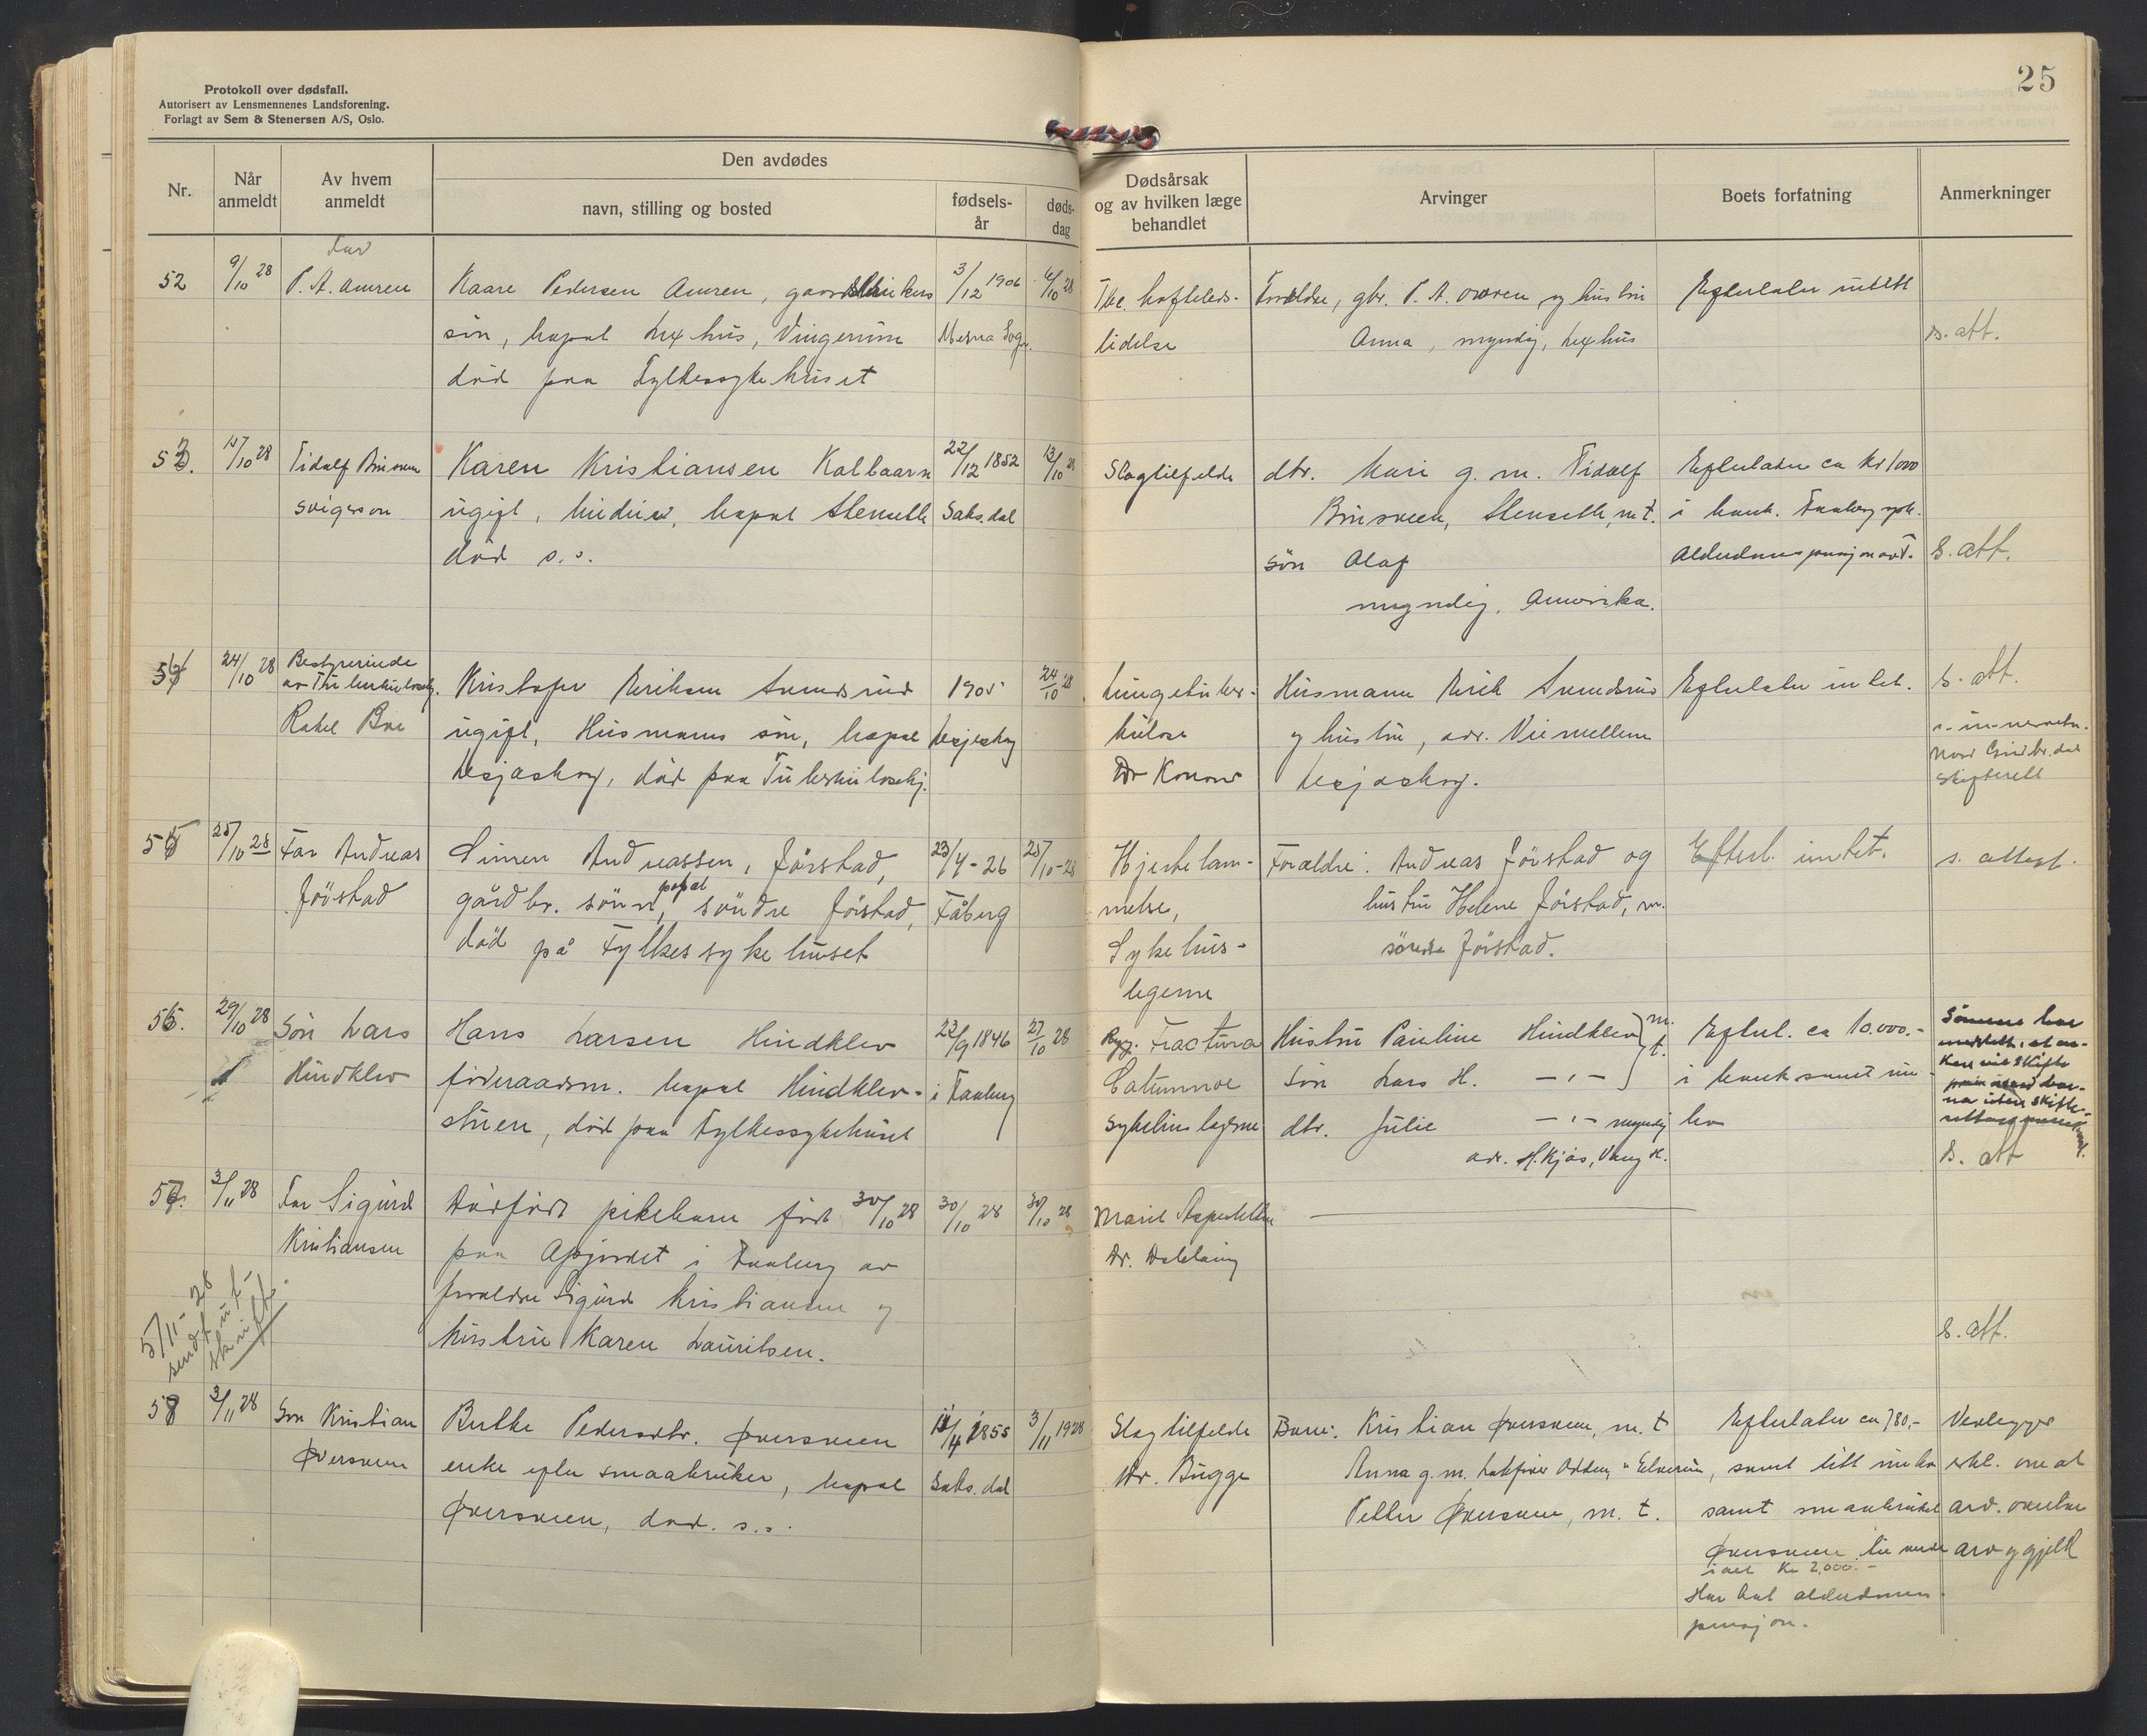 25
Protokoll over dødsfall.
Autorisert av Lensmennenes Landsforening.
Forlagt av Sem & Stenersen A/S, Oslo.
Nr.
Når anmeldt
Av hvem anmeldt
Den avdødes
navn, stilling og bosted
fødsels-år
døds-dag
Dødsårsak
og av hvilken læge
behandlet
Arvinger
Boets forfatning
Anmerkninger
52
9/10 28
Far
P. A. Amren
Kaare Pedersen Amren, gaardbrukers
søn, bopæl Lexhus, Vingerum
død paa Fylkessykehuset
3/12 1906
6/10 28
Tbc. hofteleds-
lidelse
Foreldre, gbr. P. A. Amren og hustru
Anna, myndig, Lexhus
Efterlater intett
s. att.
53.
15/10 28
Tidolf Brusveen
svigerson
Karen Kristiansen Kalbaarn
ugift, bopæl Slensette
død s.s.
22/12 1852
Saks.dal
13/10 28
Slagtilfelde
dtr. Mari g. m. Tidolf
Brusveen, Slensette, m.t.
søn Olaf
myndig, Amerika.
Efterlater ca kr 1000
i bank. Faaberg
s. att.
54
24/10 28
Bestyrerinde
av Tuberkuloshj.
Rakel Boe
Kristofer Eriksen Svendsrud
ugift, Husmanns søn, bopæl
Lesjaskog, død paa Tuberkulosehj.
1905
Lesjaskog
24/10 28
Lungetuber-
kulose
Dr Konow
Husmann Erik Svendsrud
og hustru, adr.
Lesjaskog.
Efterlater intet.
s. att.
Nord Gudbr. dal
skifterett
55
25/10 28
Far Andreas
Jørstad
Simen Andreassen, Jørstad,
gårdbr. sønn, bopæl søndre Jørstad,
død på Fylkessykehuset
23/4-26
Fåberg
25/10-28
Hjertelam-
melse,
Sykehus-
legerne
Foreldre: Andreas Jørstad og
hustru Helene Jørstad, m.
søndre Jørstad.
Efterl. intet.
s. attest.
56.
29/10 28
Søn Lars
Hindklev
Hans Larsen Hindklev
føderaadsm. bopæl Hindklev-
stuen, død paa Fylkessykehuset
23/9 1846
i Faaberg
27/10 28
Fractura
sykehuslegerne
Hustru Pauline Hindklev m.
Søn Lars H. — " — t.
dtr. Julie — " — myndig
adr. H. Kjøs, Vang H.
Efterl. ca 10.000.-
i bank samt inn-
bo
s. att
57.
3/11 28
Far Sigurd
Kristiansen
Dødfødt pikebarn født 30/10 28
paa Apjordet i Faaberg av
foreldre Sigurd Kristiansen og
hustru Karen Lauritsen.
30/10 28
30/10 28
Dr. Dæhlring
s. att.
5/11-28
sendt ut-
skrift.
58
3/11 28
Søn Kristian
Øversveen
Berthe Pedersdtr. Øversveen
enke efter smaabruker, bopæl
Øversveen, død. s.s.
11/4 1855
Saks.dal
3/11 1928
Slagtilfelde
Dr. Bugge
Barn: Kristian Øversveen, m. t
Anna g.m. Odden, Elverum,
Petter Øversveen, m. t.
Efterlater ca 780,-
samt litt innbo
samt smaabruket
Øversveen til verdi
ialt Kr 2,000.-
Har hat alderdoms
pensjon.
Vedlegger
erkl. om at
arv. overtar
arv og gjeld